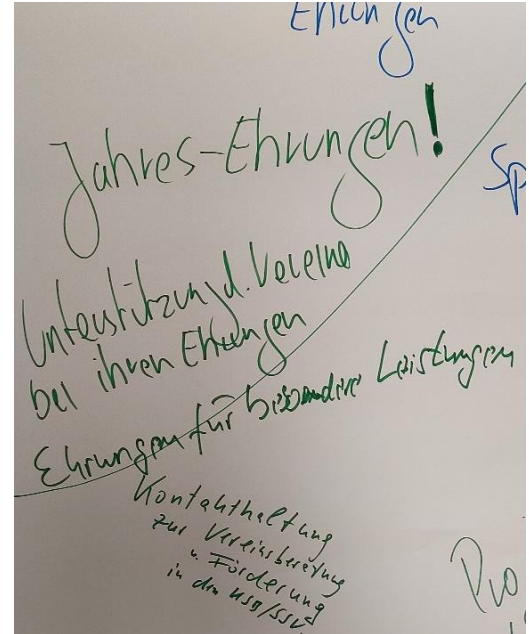 Ehrungen
Jahres-Ehrungen!
Sp
Unterstützung d. Vereine
bei ihren Ehrungen
Ehrungen für besondere Leistungen
Kontakthaltung
zur Vereinsberatung
u. Förderung
in den KSB/SSV
Pro